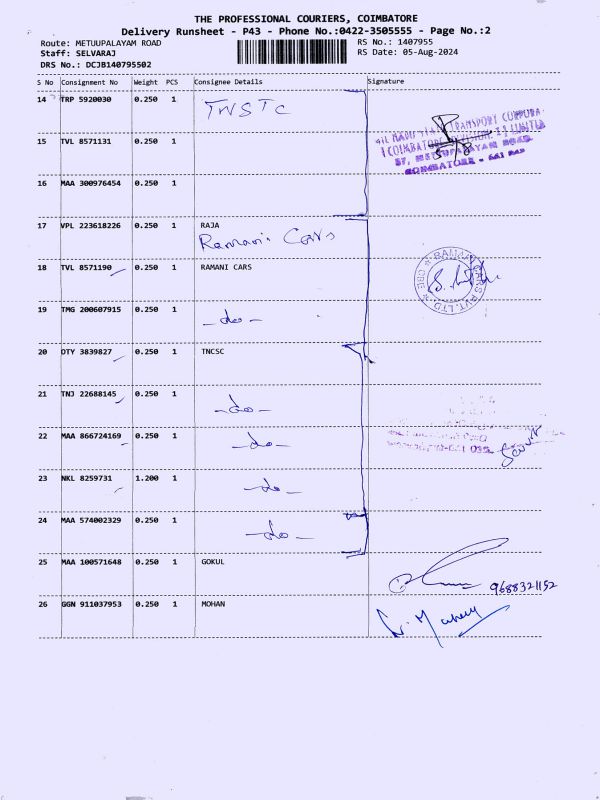 THE PROFESSIONAL COURIERS, COIMBATORE
Delivery Runsheet - P43 - Phone No.:0422-3505555 - Page No.:2
Route: METUUPALAYAM ROAD
RS No.: 1407955
Staff: SELVARAJ
RS Date: 05-Aug-2024
DRS No.: DCJB140795502
S No Consignment No Weight PCS Consignee Details Signature
14 TRP 5920030 0.250 1 TNSTC
15 TVL 8571131 0.250 1
16 MAA 300976454 0.250 1
17 VPL 223618226 0.250 1 RAJA
Ramani Cars
18 TVL 8571190 0.250 1 RAMANI CARS
19 TMG 200607915 0.250 1
-do-
20 OTY 3839827 0.250 1 TNCSC
21 TNJ 22688145 0.250 1
-do-
22 MAA 866724169 0.250 1 -do-
23 NKL 8259731 1.200 1 -do-
24 MAA 574002329 0.250 1 -do-
25 MAA 100571648 0.250 1 GOKUL
9688321152
26 GGN 911037953 0.250 1 MOHAN